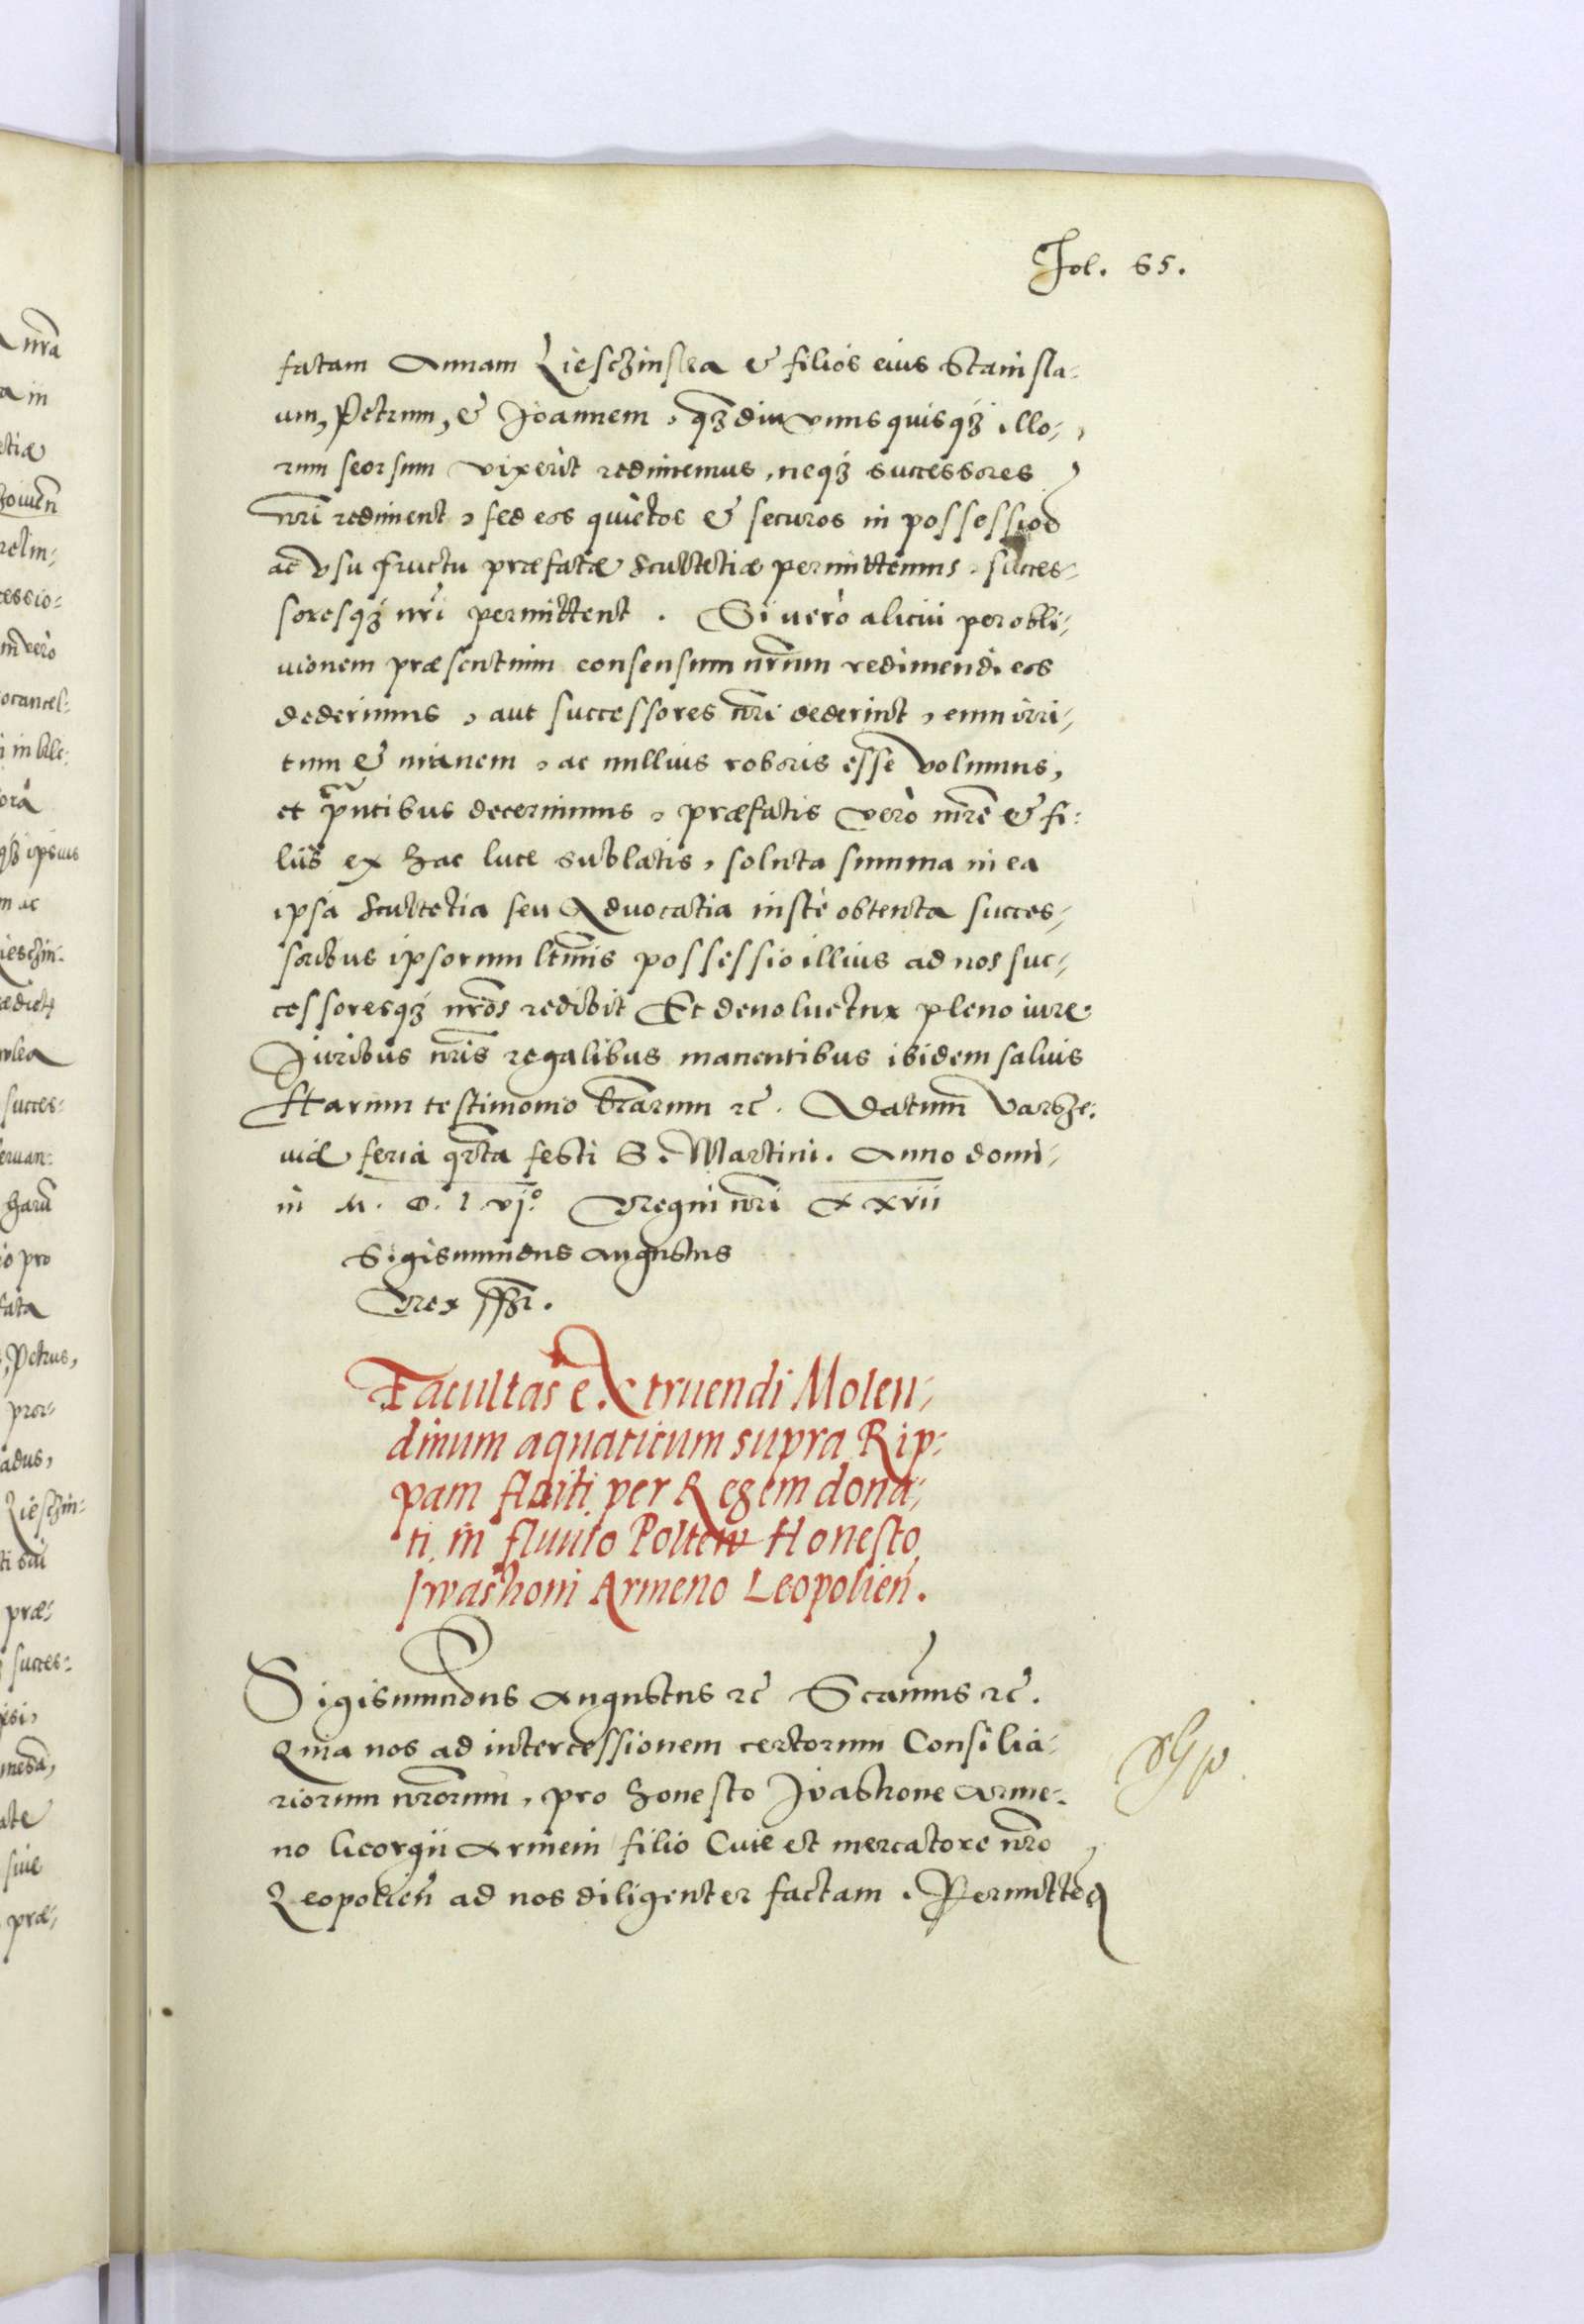 Fol. 65.
fatam Annam Lieschinska & filios eius Stanisla-
um, Petrum, & Joannem, q̃3diu unusquisq3 illo-
rum seorsum vixerit redimemus, neq3 successores
nr̃i rediment, sed eos quietos & securos in possessioẽ
ac usu fructu præfatæ scultetiæ permittemus, succes-
soresq3 nr̃i permittent. Si verò alicui per obli-
uionem præsentium consensum nr̃um redimendi eos
dederimus, aut successores nr̃i dederint, eum irri-
tum & inanem, ac nullius roboris esse volumus,
et pñtibus decernimus, præfatis verò mr̃e & fi-
liis ex hac luce sublatis, soluta summa in ea
ipsa scultetia seu Aduocatia iustè obtenta succes-
soribus ipsorum ltĩmis possessio illius ad nos suc-
cessoresq3 nr̃os redibit Et deuoluetur pleno iure.
Juribus nr̃is regalibus manentibus ibidem saluis
Harum testimonio lr̃arum &c̃. Datum Varsze-
uiæ feria qr̃ta festi S. Martini. Anno domi-
ni M. D. l. vjº. Regni nr̃i XXvii
Sigismundus Augustus
Rex sst̃.
Facultas extruendi Molen-
dinum aquaticum supra Rip-
pam fluiti per Regem dona-
ti in fluuio Poltew Honesto
Jwashoni Armeno Leopolien̄.
Sigismundus Augustus &c̃ Sc̃aũmus &c̃.
Quia nos ad intercessionem certorum Consilia-
riorum nr̃orum, pro honesto Jvashone Arme-
no Georgii Armeni filio Ciue et mercatore nr̃o
Leopolien̄ ad nos diligenter factam. Permitten̄